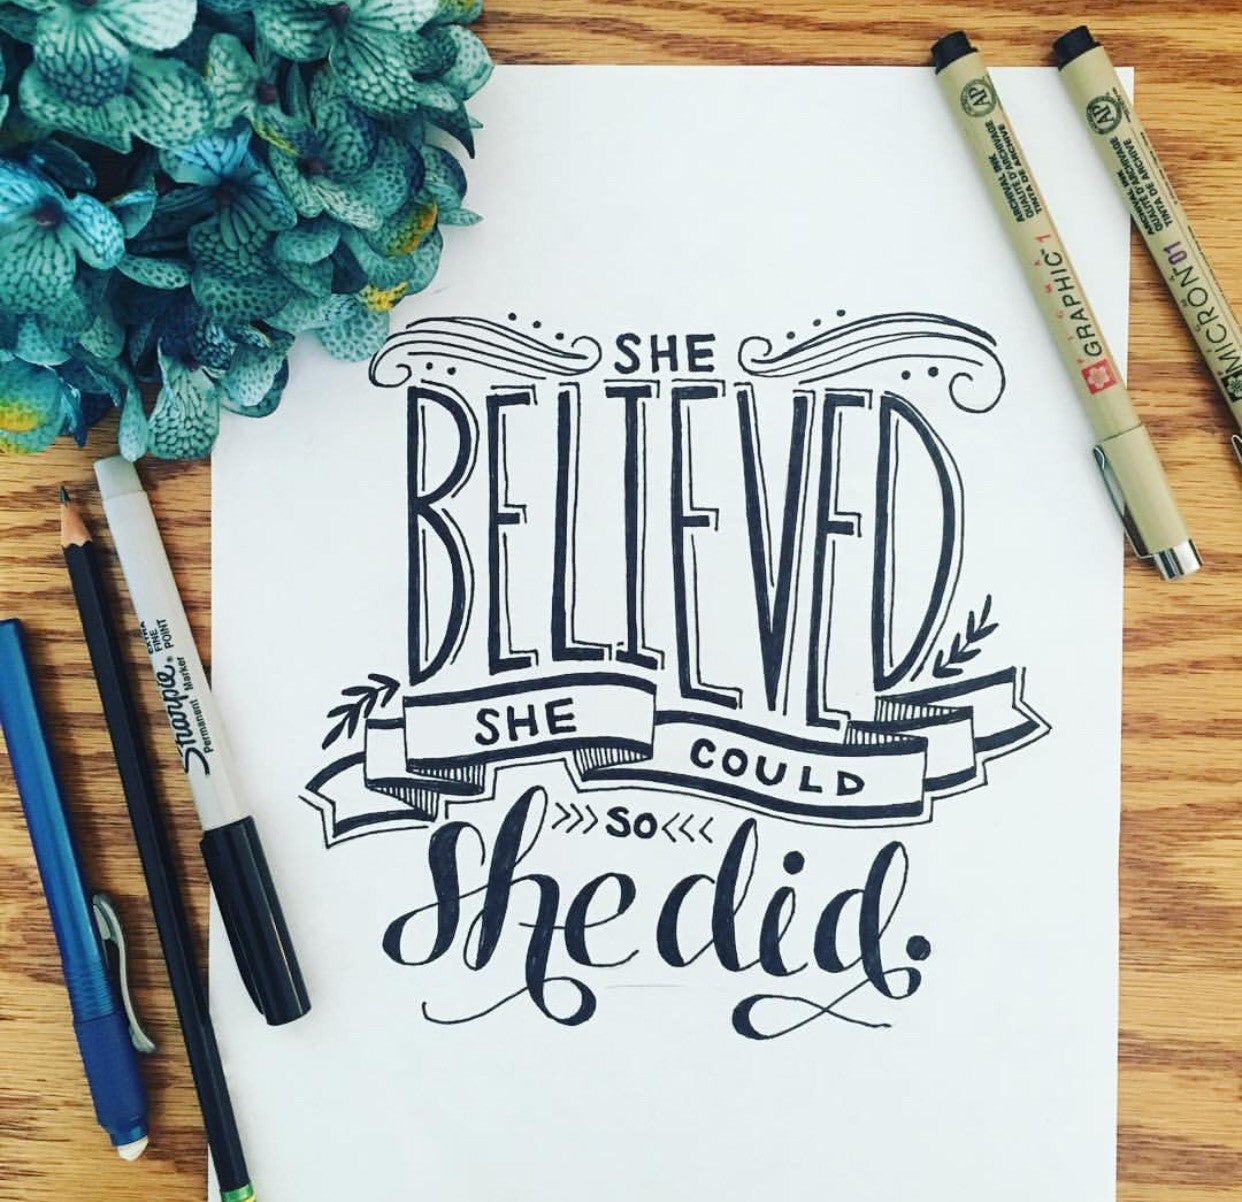 SHE
BELIEVED
SHE
COULD
>>> SO <<<
she did.
EXTRA
FINE
POINT
Sharpie®
Permanent Marker
AP
ARCHIVAL INK
QUALITÉ D'ARCHIVAGE
TINTA DE ARCHIVE
GRAPHIC™ 1
AP
ARCHIVAL INK
QUALITÉ D'ARCHIVAGE
TINTA DE ARCHIVE
MICRON™ 01